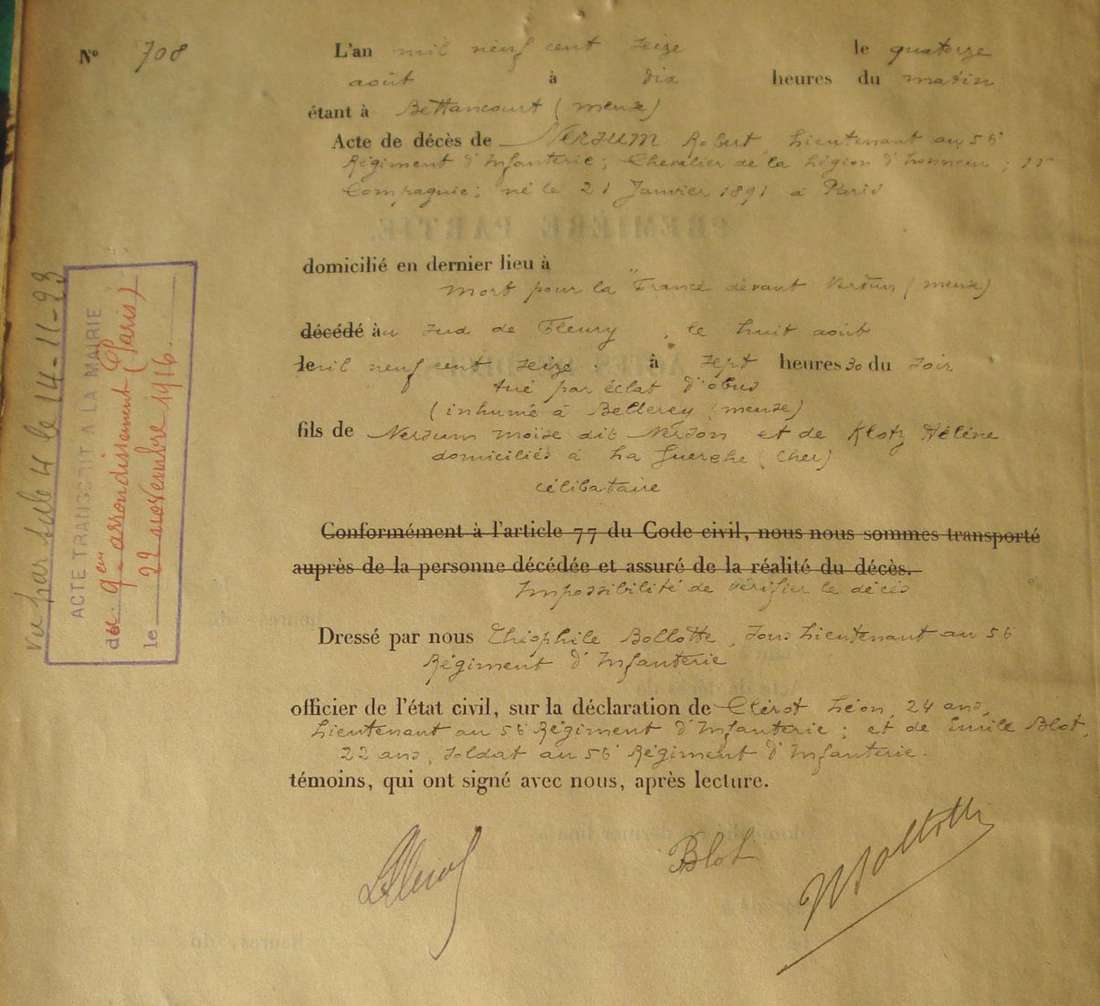 N° 708
L'an mil neuf cent seize le quatorze
août à dix heures du matin
étant à Bettancourt (meuse)
Acte de décès de Nersum Robert, Lieutenant au 56e
Régiment d'Infanterie; Chevalier de la Légion d'honneur;
Compagnie; né le 21 Janvier 1891 à Paris
domicilié en dernier lieu à
mort pour la France devant Verdun (meuse)
décédé au sud de Fleury, le huit août
le mil neuf cent seize à sept heures 30 du soir
tué par éclat d'obus
(inhumé à Belleray (meuse)
fils de Nersum Moïse dit Nerson et de Klotz Hélène
domiciliés à La Guerche (Cher)
célibataire
Conformément à l'article 77 du Code civil, nous nous sommes transporté
auprès de la personne décédée et assuré de la réalité du décès.
Impossibilité de vérifier le décès
Dressé par nous Théophile Bollotte, Sous Lieutenant au 56
Régiment d'Infanterie
officier de l'état civil, sur la déclaration de Clérot Léon, 24 ans,
Lieutenant au 56e Régiment d'Infanterie; et de Emile Blot,
22 ans, soldat au 56e Régiment d'Infanterie.
témoins, qui ont signé avec nous, après lecture.
Blot
Bollotte
vu par le 14-11-93
ACTE TRANSCRIT A LA MAIRIE
du 9em arrondissement (Paris)
le 22 novembre 1916.